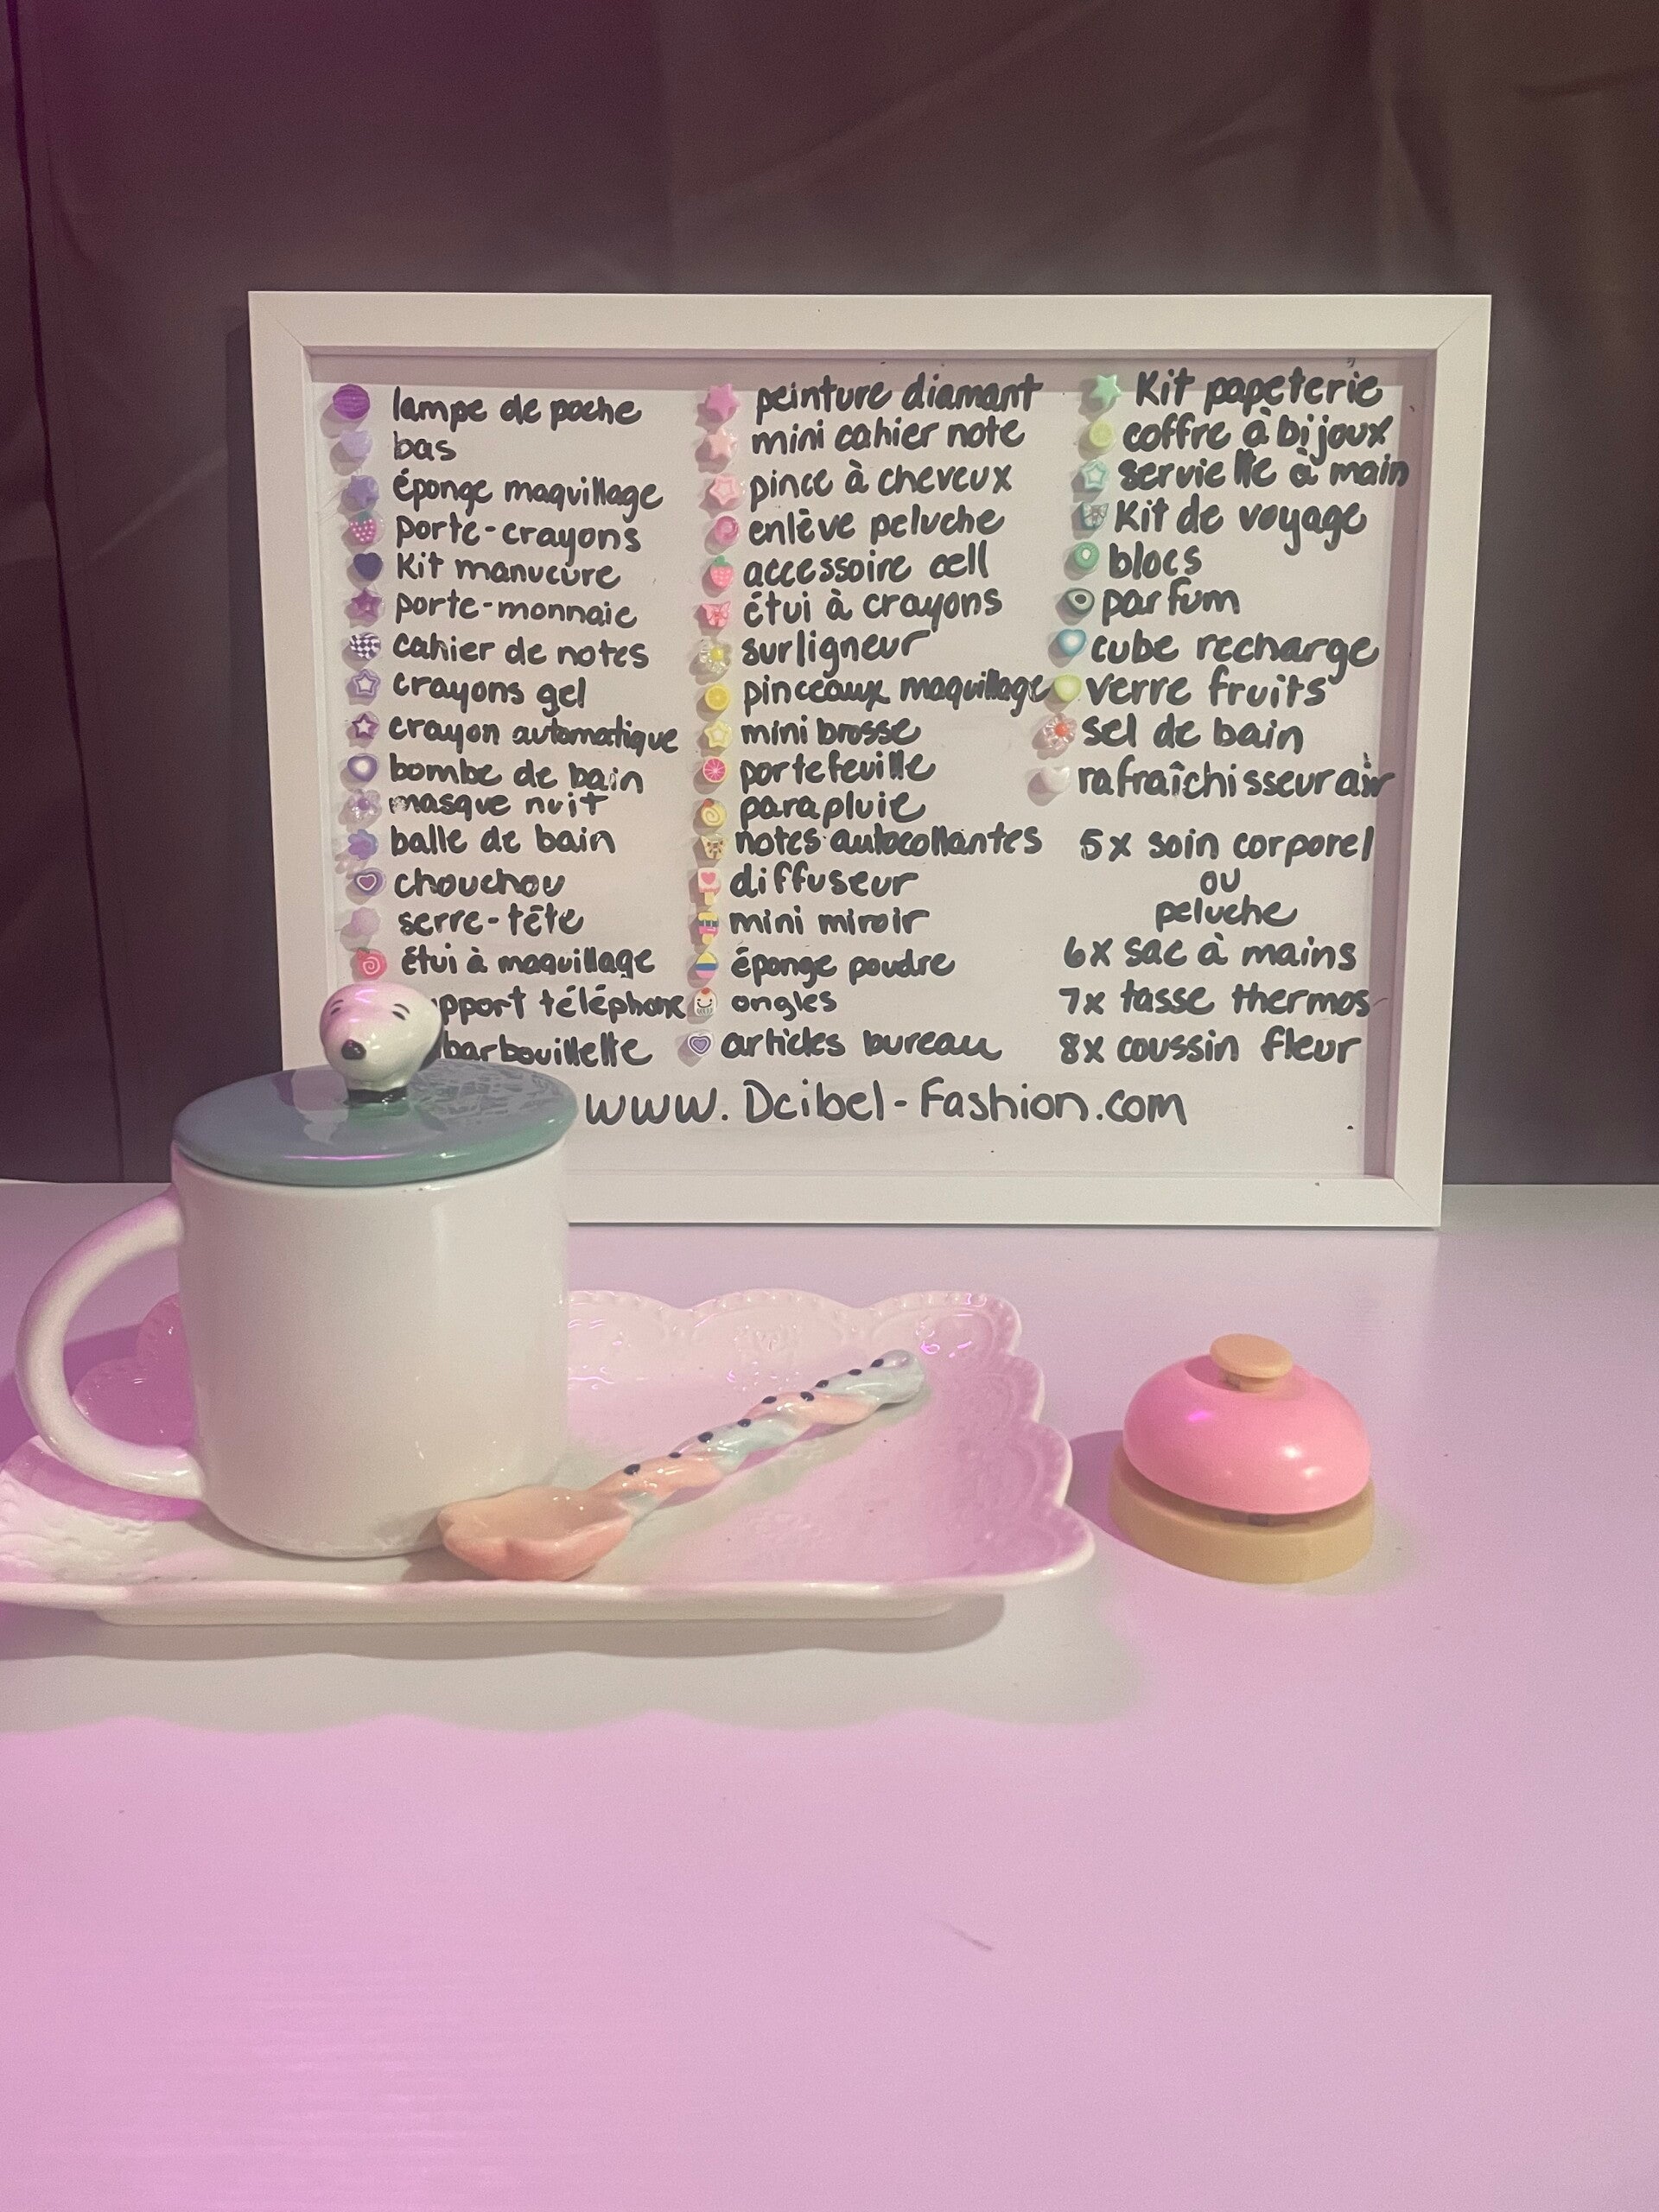 lampe de poche
bas
éponge maquillage
porte-crayons
Kit manucure
porte-monnaie
cahier de notes
crayons gel
crayon automatique
bombe de bain
masque nuit
balle de bain
chouchou
serre-tête
étui à maquillage
pport téléphone
barbouillette
peinture diamant
mini cahier note
pince à cheveux
enlève peluche
accessoire cell
étui à crayons
surligneur
pinceaux maquillage
mini brosse
portefeuille
parapluie
notes autocollantes
diffuseur
mini miroir
éponge poudre
ongles
articles bureau
Kit papeterie
coffre à bijoux
serviette à main
Kit de voyage
blocs
parfum
cube recharge
verre fruits
sel de bain
rafraîchisseur air
5x soin corporel
ou
peluche
6x sac à mains
7x tasse thermos
8x coussin fleur
www.Dcibel-Fashion.com